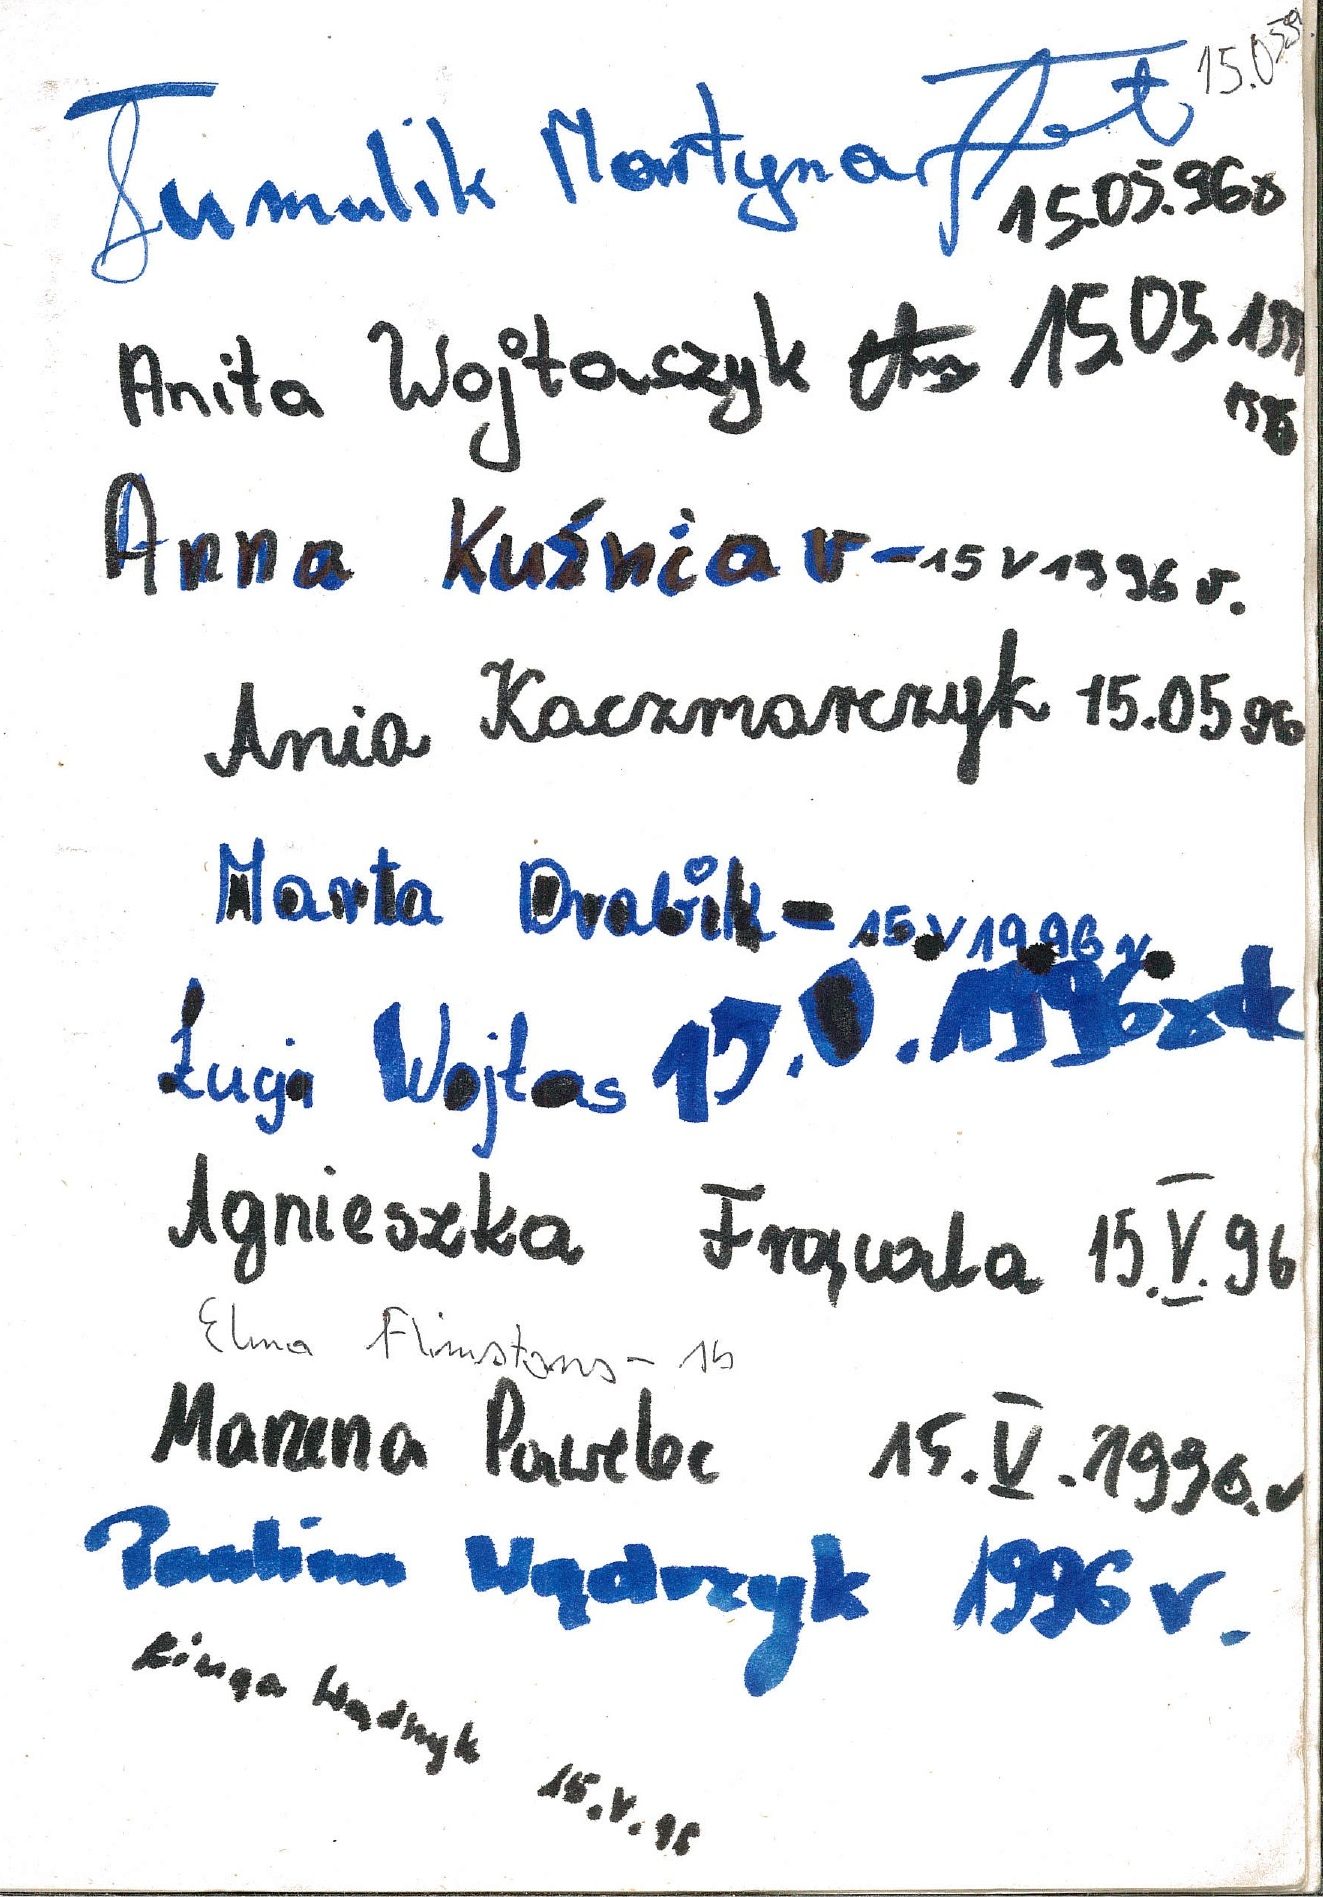 15.05
Tumulik Martyna
15.05.96r
Anita Wojtaszyk 15.05.
Anna Kuśniar - 15 V 1996 r.
Ania Kaczmarczyk 15.05 96
Marta Drabik - 15.V 1996 r.
Wojtas 15.V.1996
Agnieszka Frąwała 15.V.96
Elma Flinstons - 1b
Marzena Pawelec 15.V.1996.r
Paulina Wądrzyk 1996 r.
Kinga Wądrzyk 15.V.96